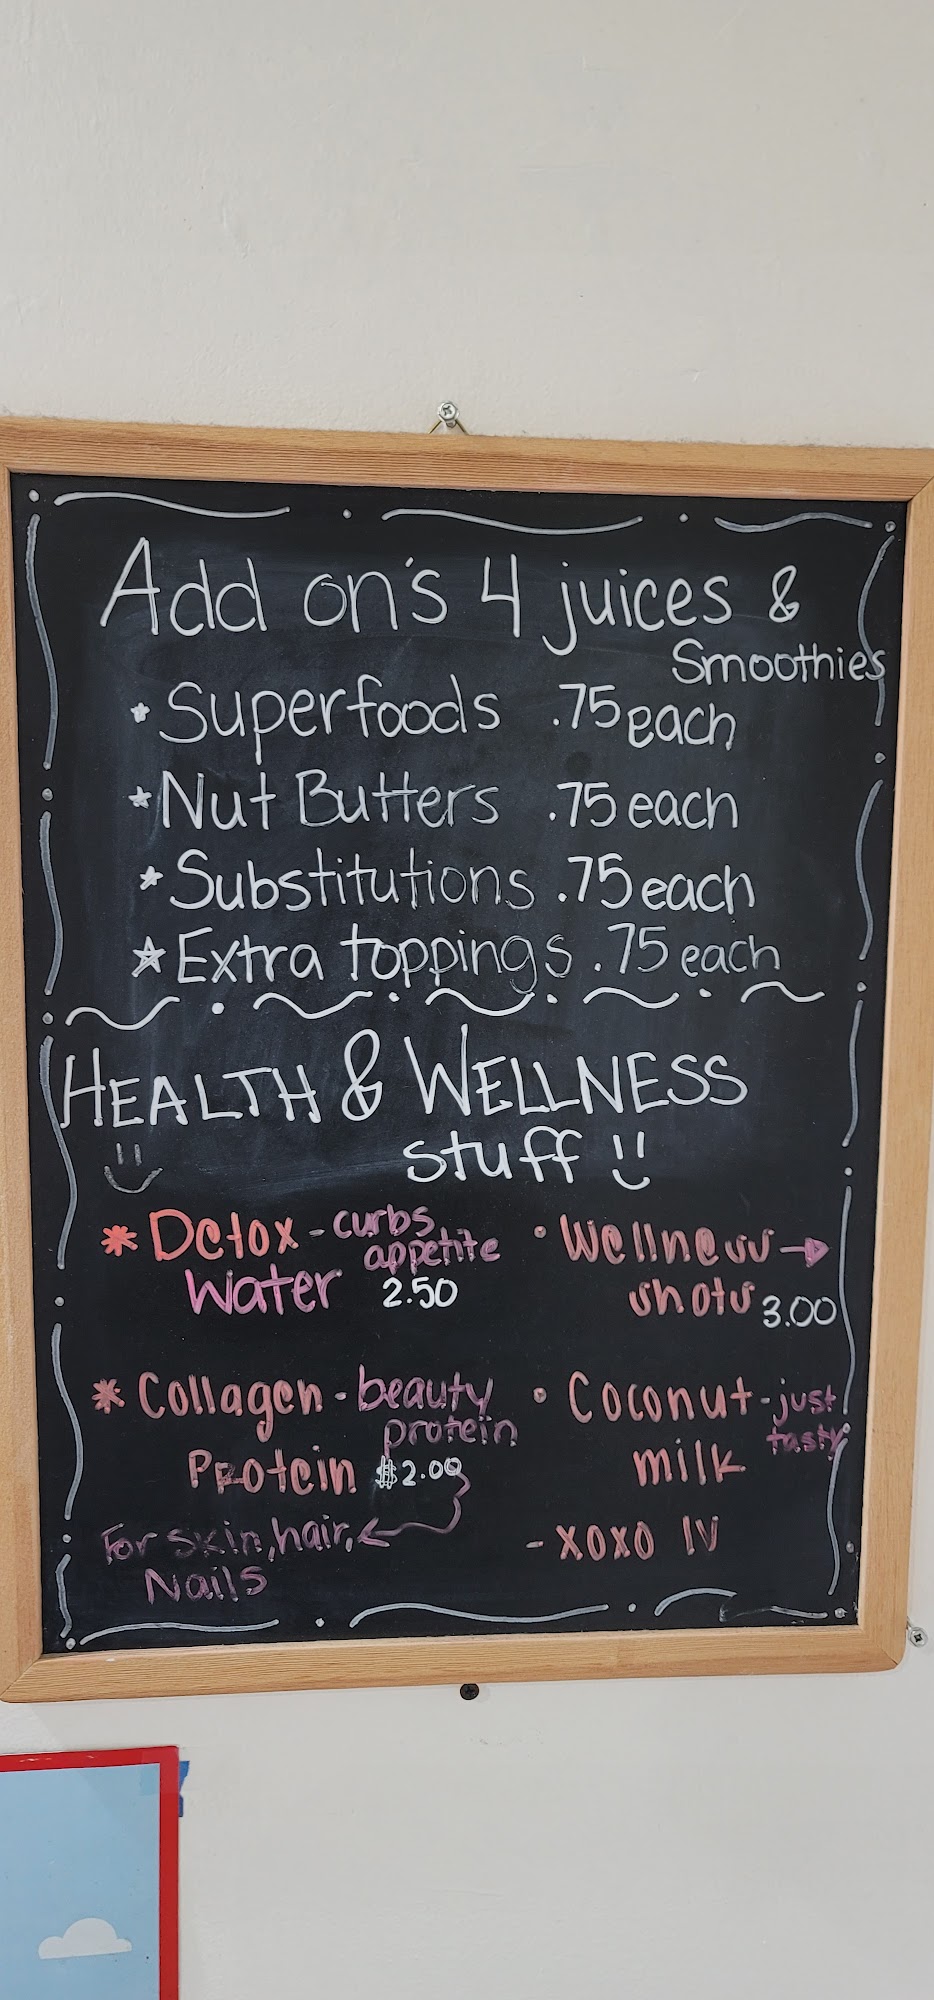 Add on's 4 juices &
Smoothies
Superfoods .75 each
Nut Butters .75 each
Substitutions .75 each
Extra toppings .75 each
HEALTH & WELLNESS
stuff !!
Detox - curbs
appetite
Water 2.50
Wellness →
shots 3.00
Collagen - beauty
protein
Protein $2.00
For skin, hair,
Nails
Coconut - just
tasty
milk
- XOXO IV